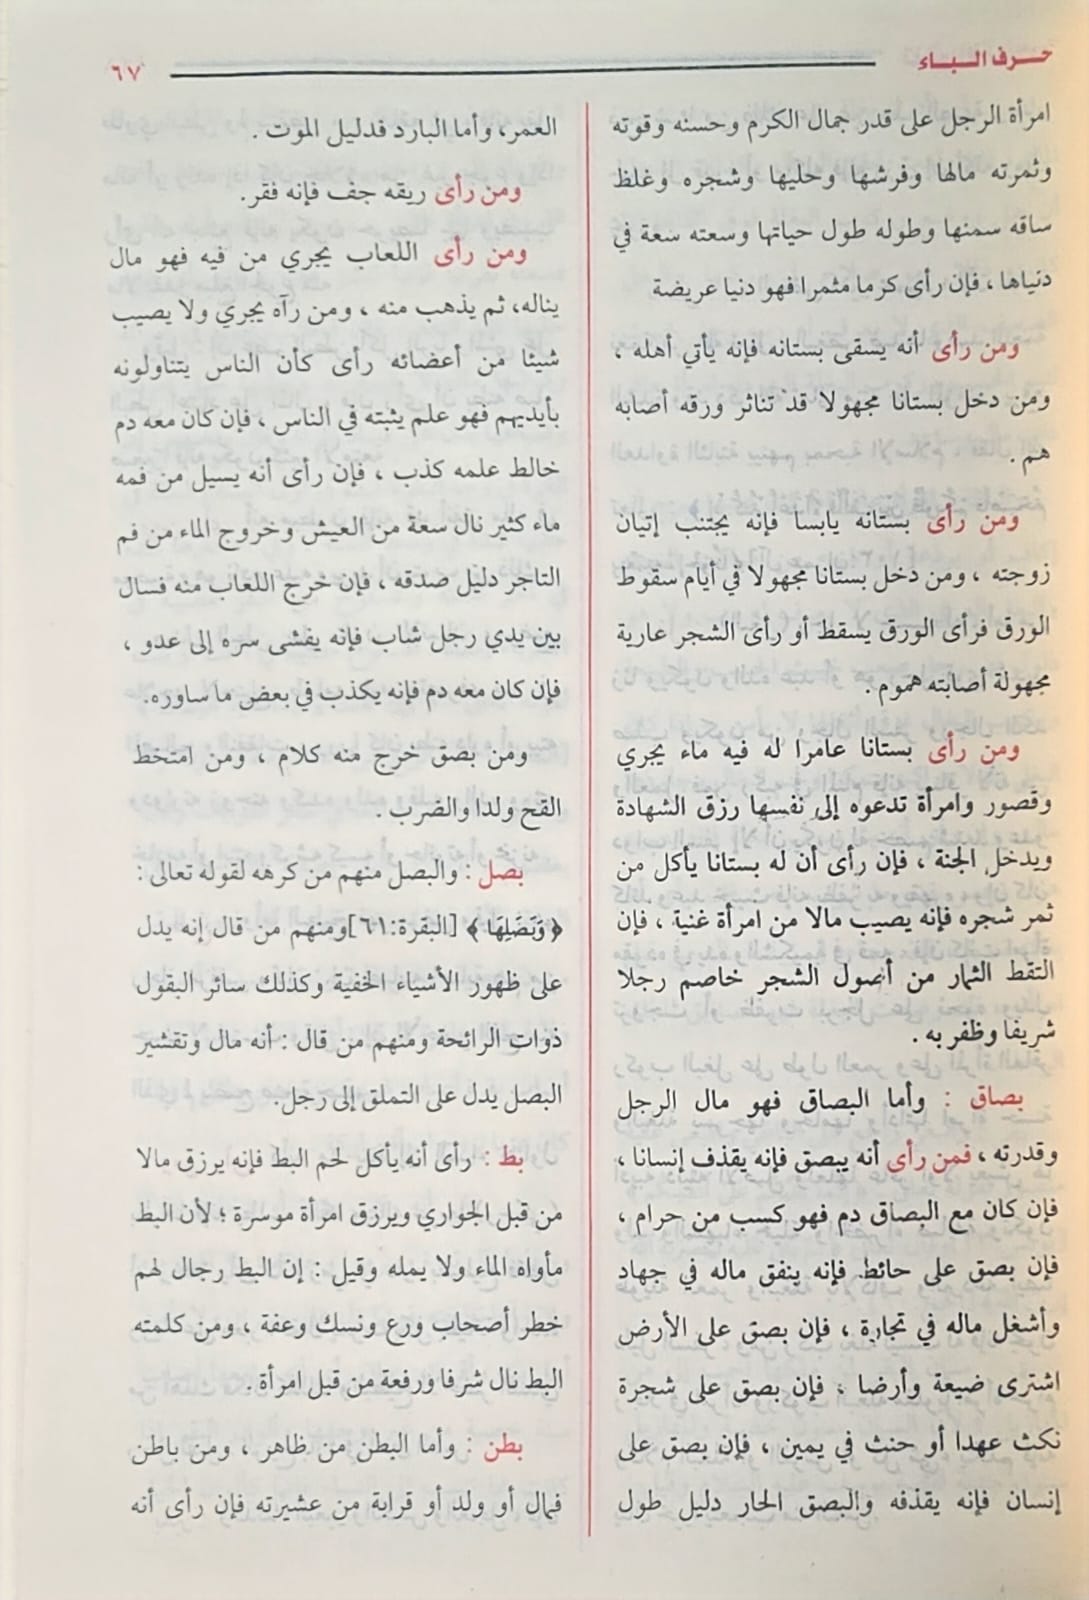 حرف الباء
٦٧
امرأة الرجل على قدر جمال الكرم وحسنه وقوته
وثمرته مالها وفرشها وحليها وشجره وغلظ
ساقه سمنها وطوله طول حياتها وسعته سعة في
دنياها ، فإن رأى كرما مثمرا فهو دنيا عريضة
ومن رأى أنه يسقى بستانه فإنه يأتي أهله ،
ومن دخل بستانا مجهولا قد تناثر ورقه أصابه
هم .
ومن رأى بستانه يابسا فإنه يجتنب إتيان
زوجته ، ومن دخل بستانا مجهولا في أيام سقوط
الورق فرأى الورق يسقط أو رأى الشجر عارية
مجهولة أصابته هموم .
ومن رأى بستانا عامرا له فيه ماء يجري
وقصور وامرأة تدعوه إلى نفسها رزق الشهادة
ويدخل الجنة ، فإن رأى أن له بستانا يأكل من
ثمر شجره فإنه يصيب مالا من امرأة غنية ، فإن
التقط الثمار من أصول الشجر خاصم رجلا
شريفا وظفر به .
بصاق : وأما البصاق فهو مال الرجل
وقدرته ، فمن رأى أنه يبصق فإنه يقذف إنسانا ،
فإن كان مع البصاق دم فهو كسب من حرام ،
فإن بصق على حائط فإنه ينفق ماله في جهاد
وأشغل ماله في تجارة ، فإن بصق على الأرض
اشترى ضيعة وأرضا ، فإن بصق على شجرة
نكث عهدا أو حنث في يمين ، فإن بصق على
إنسان فإنه يقذفه والبصق الحار دليل طول
العمر، وأما البارد فدليل الموت .
ومن رأى ريقه جف فإنه فقر.
ومن رأى اللعاب يجري من فيه فهو مال
يناله، ثم يذهب منه ، ومن رآه يجري ولا يصيب
شيئا من أعضائه رأى كأن الناس يتناولونه
بأيديهم فهو علم يثبته في الناس ، فإن كان معه دم
خالط علمه كذب ، فإن رأى أنه يسيل من فمه
ماء كثير نال سعة من العيش وخروج الماء من فم
التاجر دليل صدقه ، فإن خرج اللعاب منه فسال
بين يدي رجل شاب فإنه يفشى سره إلى عدو ،
فإن كان معه دم فإنه يكذب في بعض ما ساوره.
ومن بصق خرج منه كلام ، ومن امتخط
القح ولدا والضرب .
بصل : والبصل منهم من كرهه لقوله تعالى :
﴿ وَبَصَلِهَا ﴾ [البقرة:٦١]ومنهم من قال إنه يدل
على ظهور الأشياء الخفية وكذلك سائر البقول
ذوات الرائحة ومنهم من قال : أنه مال وتقشير
البصل يدل على التملق إلى رجل.
بط : رأى أنه يأكل لحم البط فإنه يرزق مالا
من قبل الجواري ويرزق امرأة موسرة ؛ لأن البط
مأواه الماء ولا يمله وقيل : إن البط رجال لهم
خطر أصحاب ورع ونسك وعفة ، ومن كلمته
البط نال شرفا ورفعة من قبل امرأة .
بطن : وأما البطن من ظاهر ، ومن باطن
فمال أو ولد أو قرابة من عشيرته فإن رأى أنه